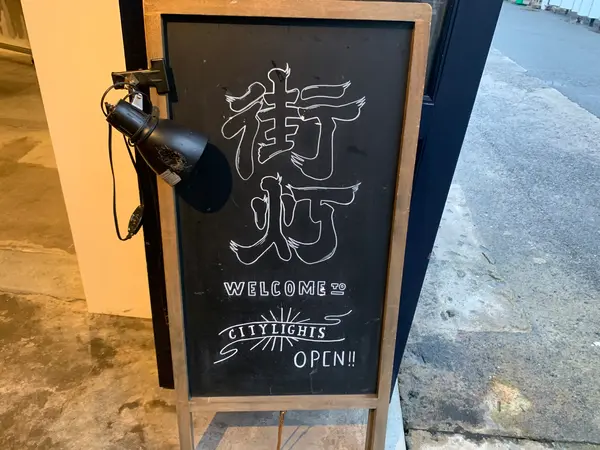 街
灯
WELCOME TO
CITYLIGHTS
OPEN!!